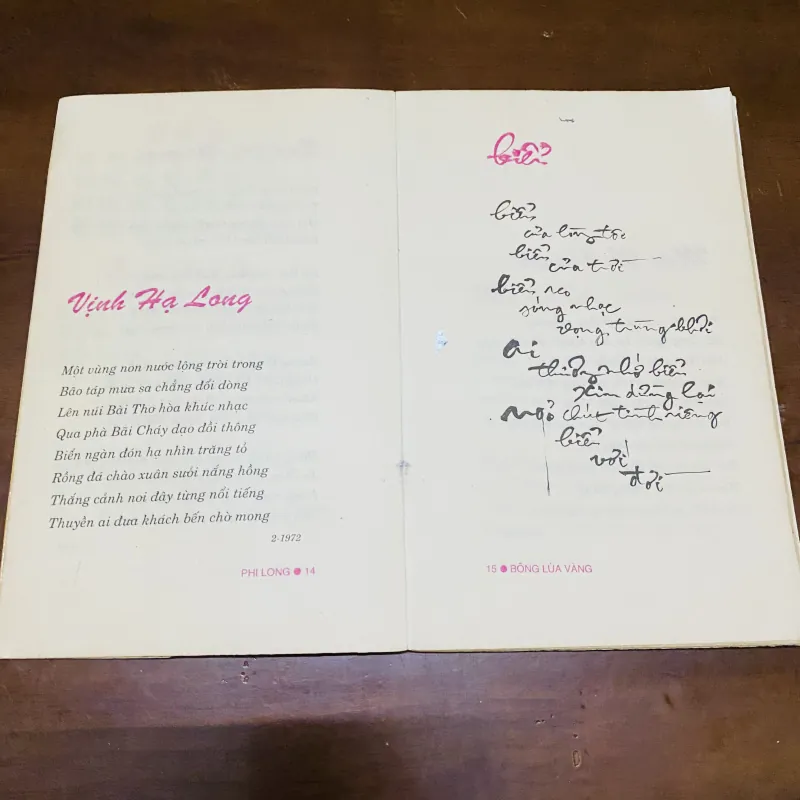 Vịnh Hạ Long
Một vùng non nước lộng trời trong
Bão táp mưa sa chẳng đổi dòng
Lên núi Bài Thơ hòa khúc nhạc
Qua phà Bãi Cháy dạo đồi thông
Biển ngàn đón hạ nhìn trăng tỏ
Rồng đá chào xuân sưởi nắng hồng
Thắng cảnh nơi đây từng nổi tiếng
Thuyền ai đưa khách bến chờ mong
2-1972
PHI LONG ● 14
biển
biển
của lòng tôi
biển
của trời
biển reo
sóng nhạc
vọng trùng khơi
ai
thương nhớ biển
xin dừng lại
ngỏ chút tình riêng
biển
với
đời
15 ● BÔNG LÚA VÀNG